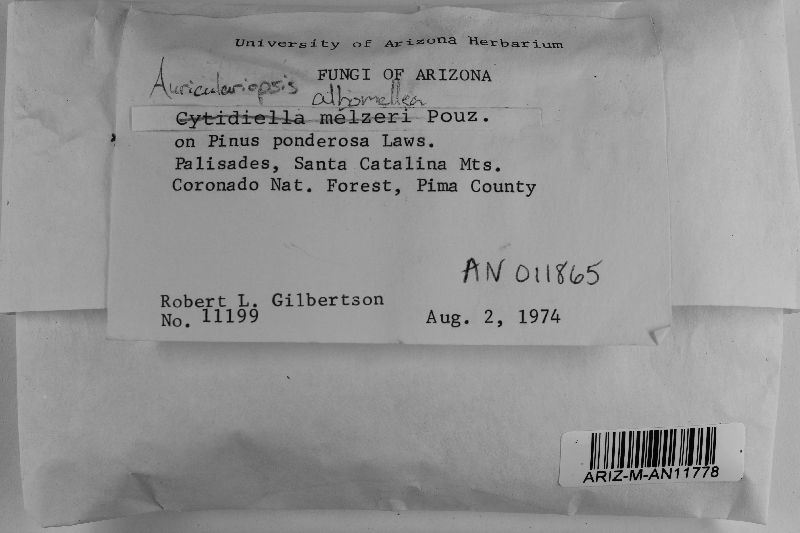 University of Arizona Herbarium
FUNGI OF ARIZONA
Auriculariopsis albomellea
Cytidiella melzeri Pouz.
on Pinus ponderosa Laws.
Palisades, Santa Catalina Mts.
Coronado Nat. Forest, Pima County
AN 011865
Robert L. Gilbertson
No. 11199
Aug. 2, 1974
ARIZ-M-AN11778